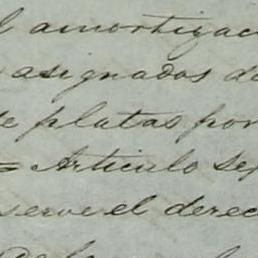 l amortizac
asignados d
e platas por
= Articulo se
serve el derec